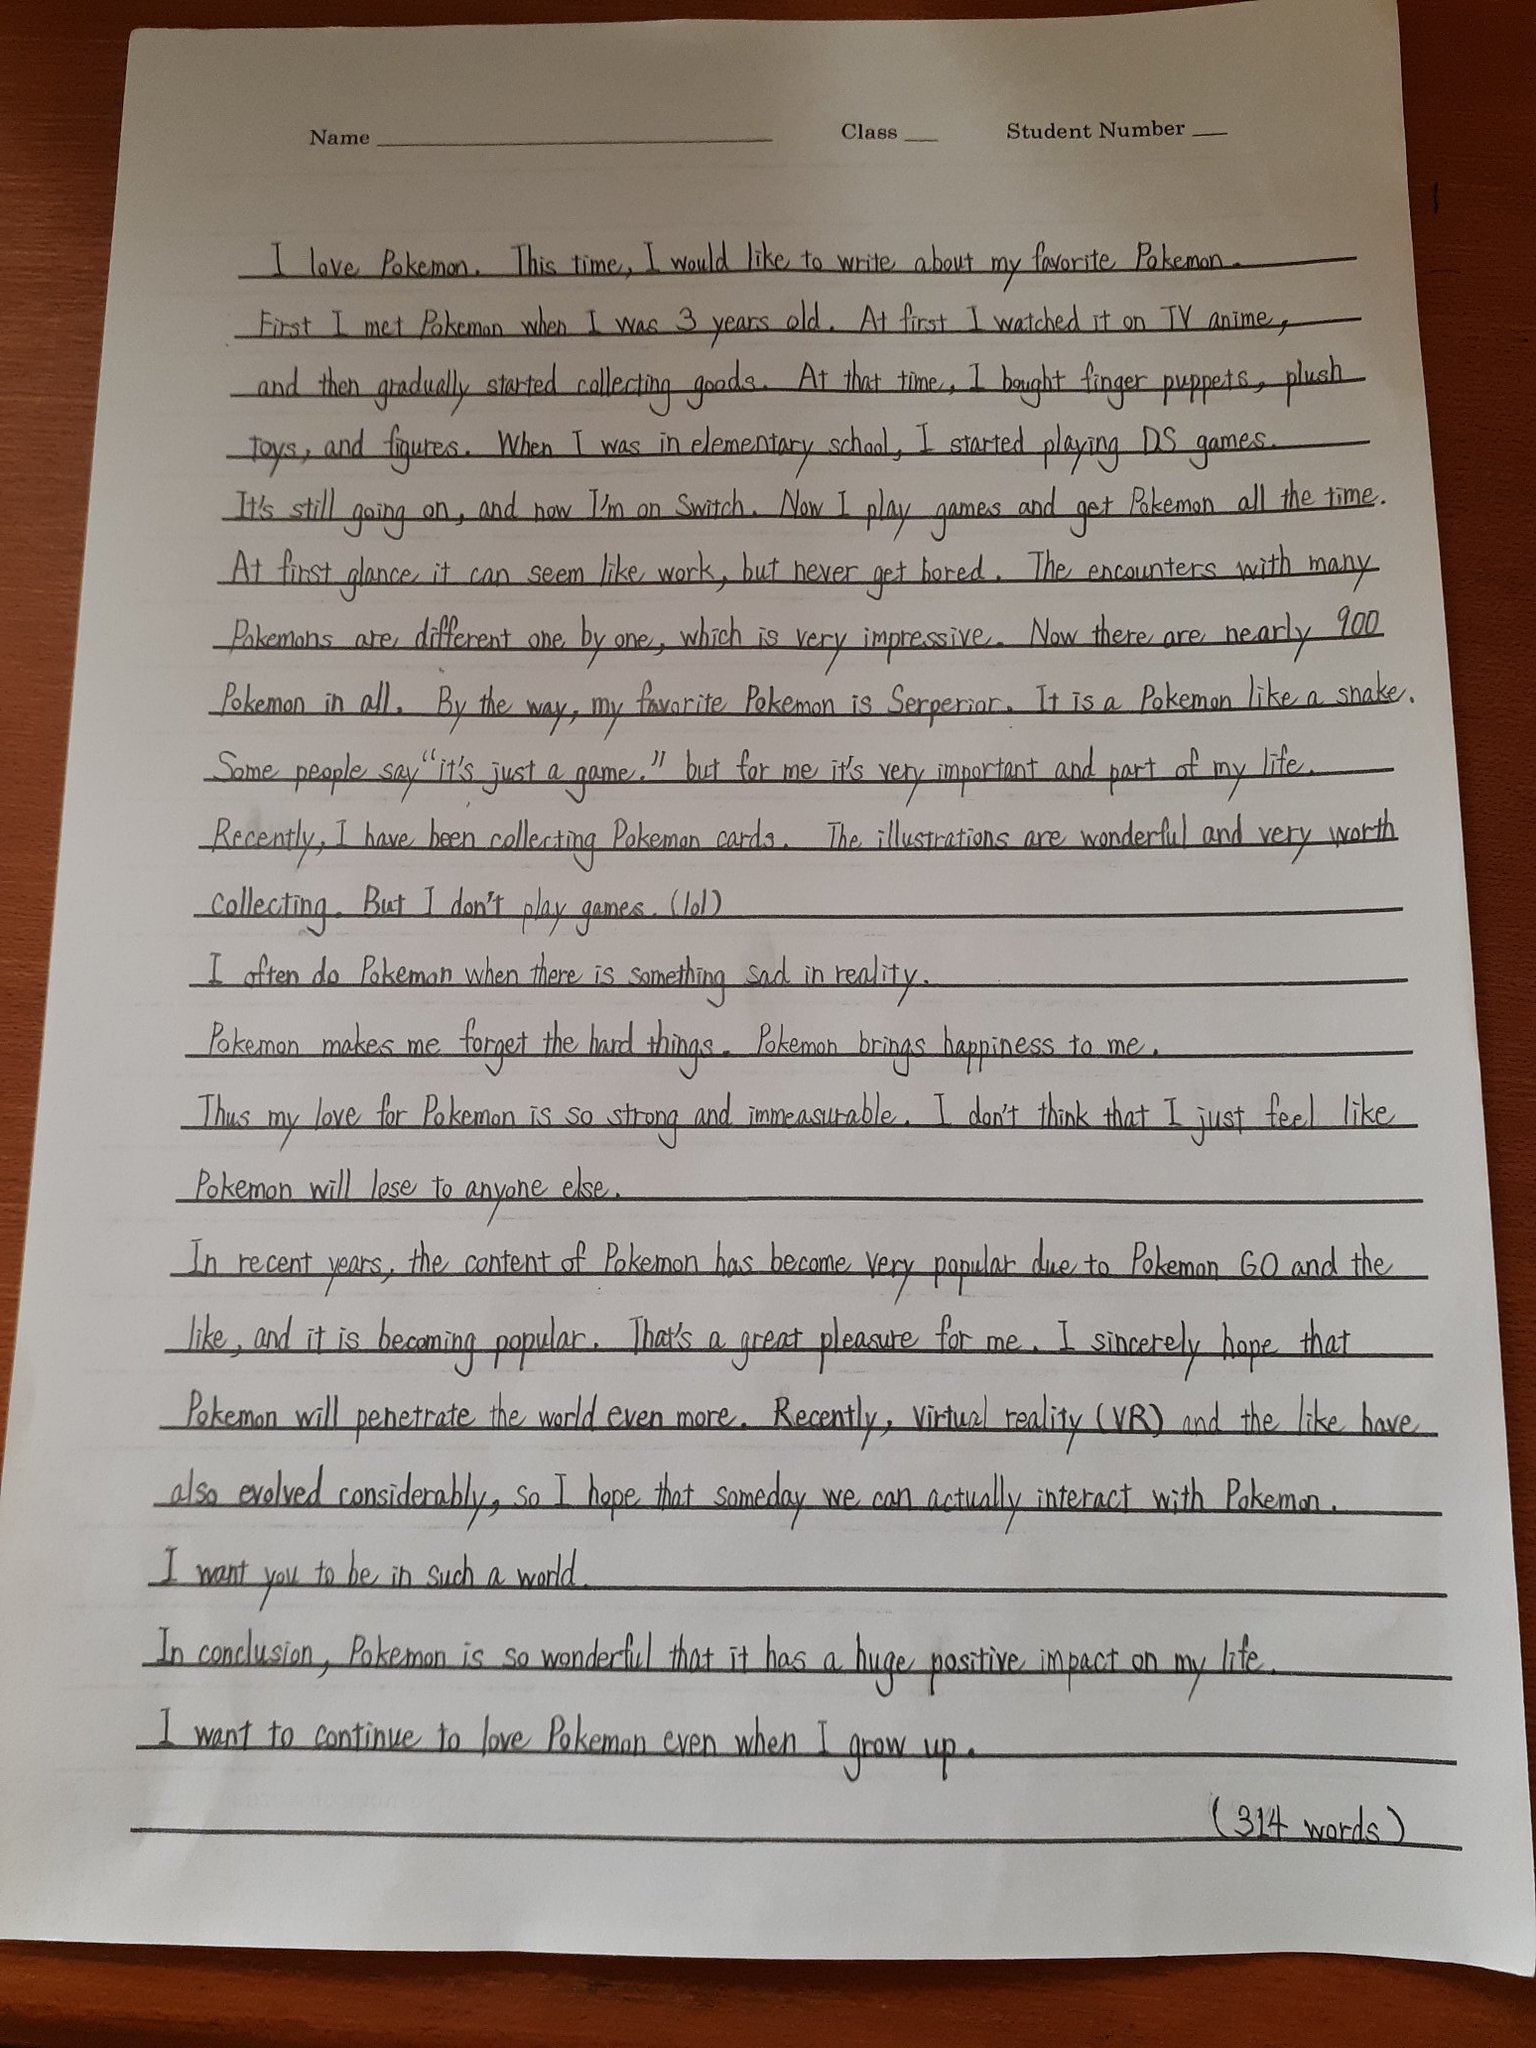 Name Class Student Number
I love Pokemon. This time, I would like to write about my favorite Pokemon.
First I met Pokemon when I was 3 years old. At first I watched it on TV anime,
and then gradually started collecting goods. At that time, I bought finger puppets, plush
toys, and figures. When I was in elementary school, I started playing DS games.
It's still going on, and now I'm on Switch. Now I play games and get Pokemon all the time.
At first glance it can seem like work, but never get bored. The encounters with many
Pokemons are different one by one, which is very impressive. Now there are nearly 900
Pokemon in all. By the way, my favorite Pokemon is Serperior. It is a Pokemon like a snake.
Some people say "it's just a game." but for me it's very important and part of my life.
Recently, I have been collecting Pokemon cards. The illustrations are wonderful and very worth
collecting. But I don't play games. (lol)
I often do Pokemon when there is something sad in reality.
Pokemon makes me forget the hard things. Pokemon brings happiness to me.
Thus my love for Pokemon is so strong and immeasurable. I don't think that I just feel like
Pokemon will lose to anyone else.
In recent years, the content of Pokemon has become very popular due to Pokemon GO and the
like, and it is becoming popular. That's a great pleasure for me. I sincerely hope that
Pokemon will penetrate the world even more. Recently, virtual reality (VR) and the like have
also evolved considerably, so I hope that someday we can actually interact with Pokemon.
I want you to be in such a world.
In conclusion, Pokemon is so wonderful that it has a huge positive impact on my life.
I want to continue to love Pokemon even when I grow up.
(314 words)